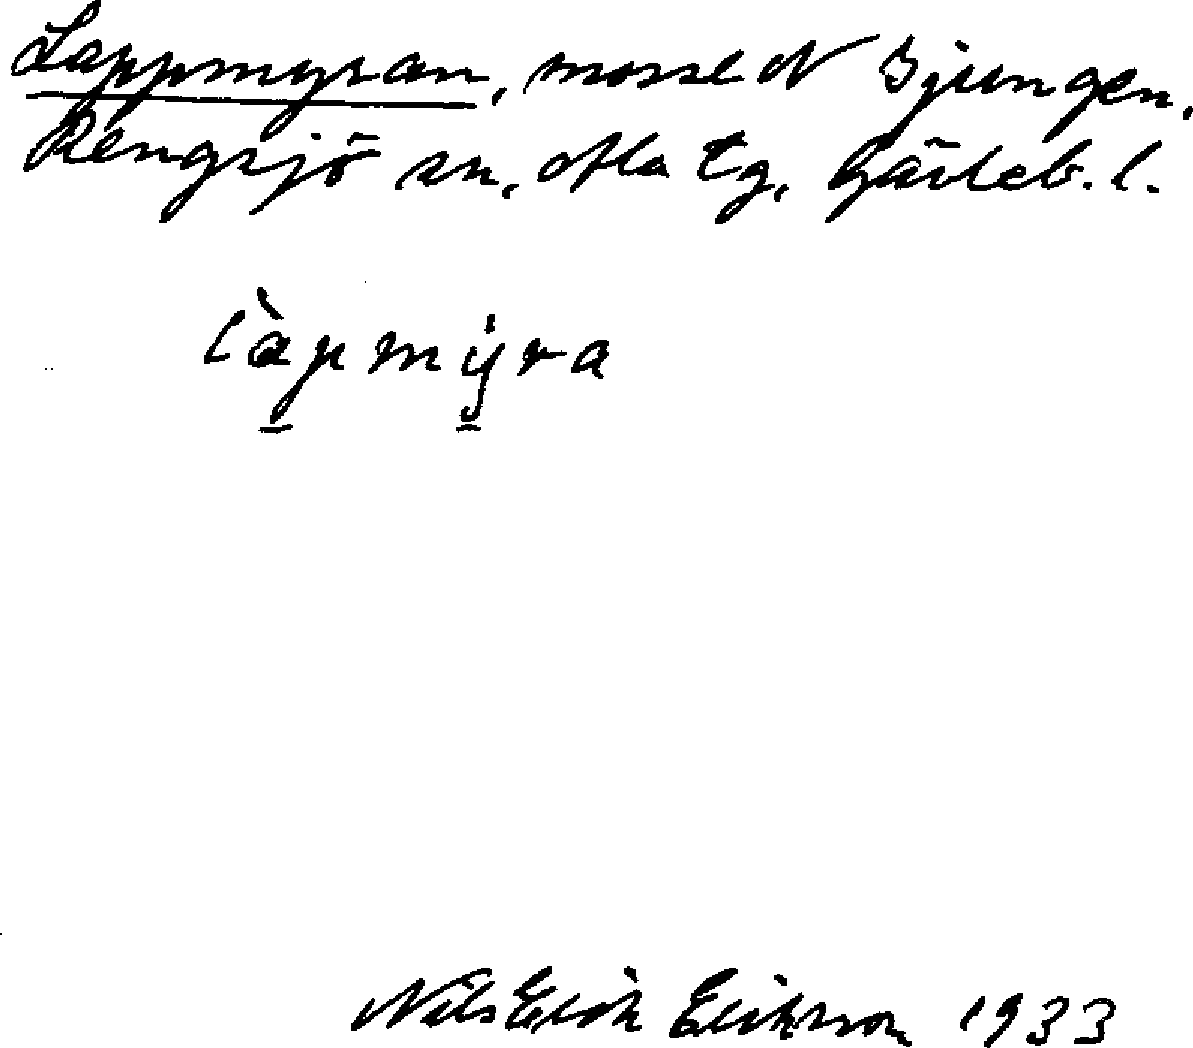 Lappmyran, mosse N Bjungen,
Rengsjö sn, Ala tg, Gävleb. l.
làpmýra
Nils Erik Erikson 1933